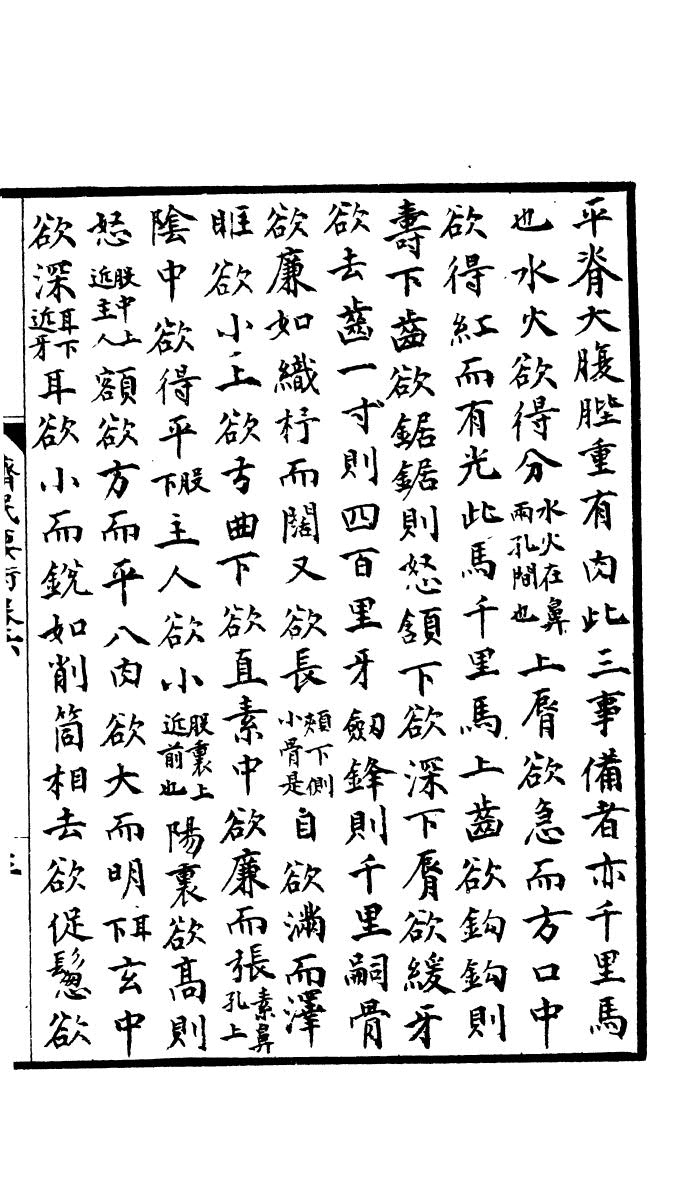 平脊大腹䏶重有肉此三事備者亦千里馬
也水火欲得分水火在鼻兩孔間也上脣欲急而方口中
欲得紅而有光此馬千里馬上齒欲鈎鈎則
壽下齒欲鋸鋸則怒頷下欲深下脣欲緩牙
欲去齒一寸則四百里牙劒鋒則千里嗣骨
欲廉如織杼而闊又欲長頰下側小骨是自欲滿而澤
眶欲小上欲弓曲下欲直素中欲廉而張素鼻孔上
陰中欲得平股下主人欲小股裏上近前也陽裏欲高則
怒股中上近主人額欲方而平八肉欲大而明耳下玄中
欲深耳下近牙耳欲小而銳如削筒相去欲促鬉欲
齊民要術卷六
三